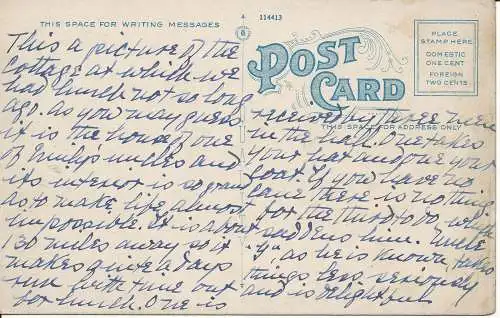 THIS SPACE FOR WRITING MESSAGES
114413
POST
CARD
PLACE
STAMP HERE
DOMESTIC
ONE CENT
FOREIGN
TWO CENTS
THIS SPACE FOR ADDRESS ONLY
This a picture of the
cottage at which we
had lunch not so long
ago. As you may guess
it is the house of one
of Emily's uncles and
its interior is so grand
as to make life almost
impossible. It is about
130 miles away so it
makes quite a days
run with time out
for lunch. One is
received by three men
in the hall. One takes
your hat and one your
coat. If you have no
cane there is nothing
for the third to do, which
saddens him. Uncle
"G", as he is known, takes
things less seriously
and is delightful